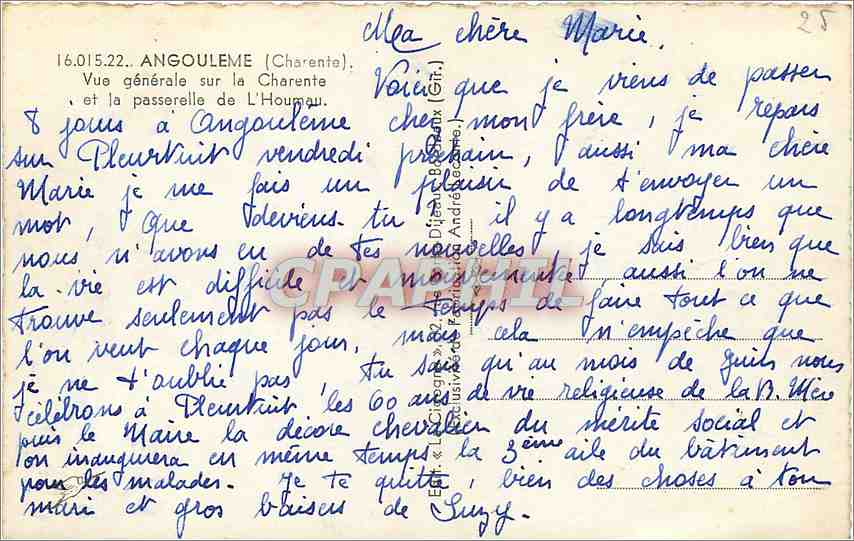 25
Ma chère Marie,
16.015.22. ANGOULEME (Charente).
Vue générale sur la Charente
et la passerelle de L'Houmeau.
Voici que je viens de passer
8 jours à Angoulème chez mon frère, je repars
sur Pleurtuit vendredi prochain, aussi ma chère
Marie je me fais un plaisir de t'envoyer un
mot, Que deviens-tu ? il y a longtemps que
nous n'avons eu de tes nouvelles, je sais bien que
la vie est difficile et mouvementée, aussi l'on ne
trouve seulement pas le temps de faire tout ce que
l'on veut chaque jour, mais cela n'empêche que
je ne t'oublie pas, tu sais qu'au mois de Juin nous
célébrons à Pleurtuit les 60 ans de vie religieuse de la B. Mère
puis le Maire la décore chevalier du mérite social et
on inaugurera en même temps la 3ème aile du bâtiment
pour les malades. Je te quitte, bien des choses à ton
mari et gros baisers de Suzy.
Edit. « La Cigogne » Porte Dijeaux, Bordeaux (Gir.)
Exclusivité de Fabrication André Lecomte.
CPAPHIL